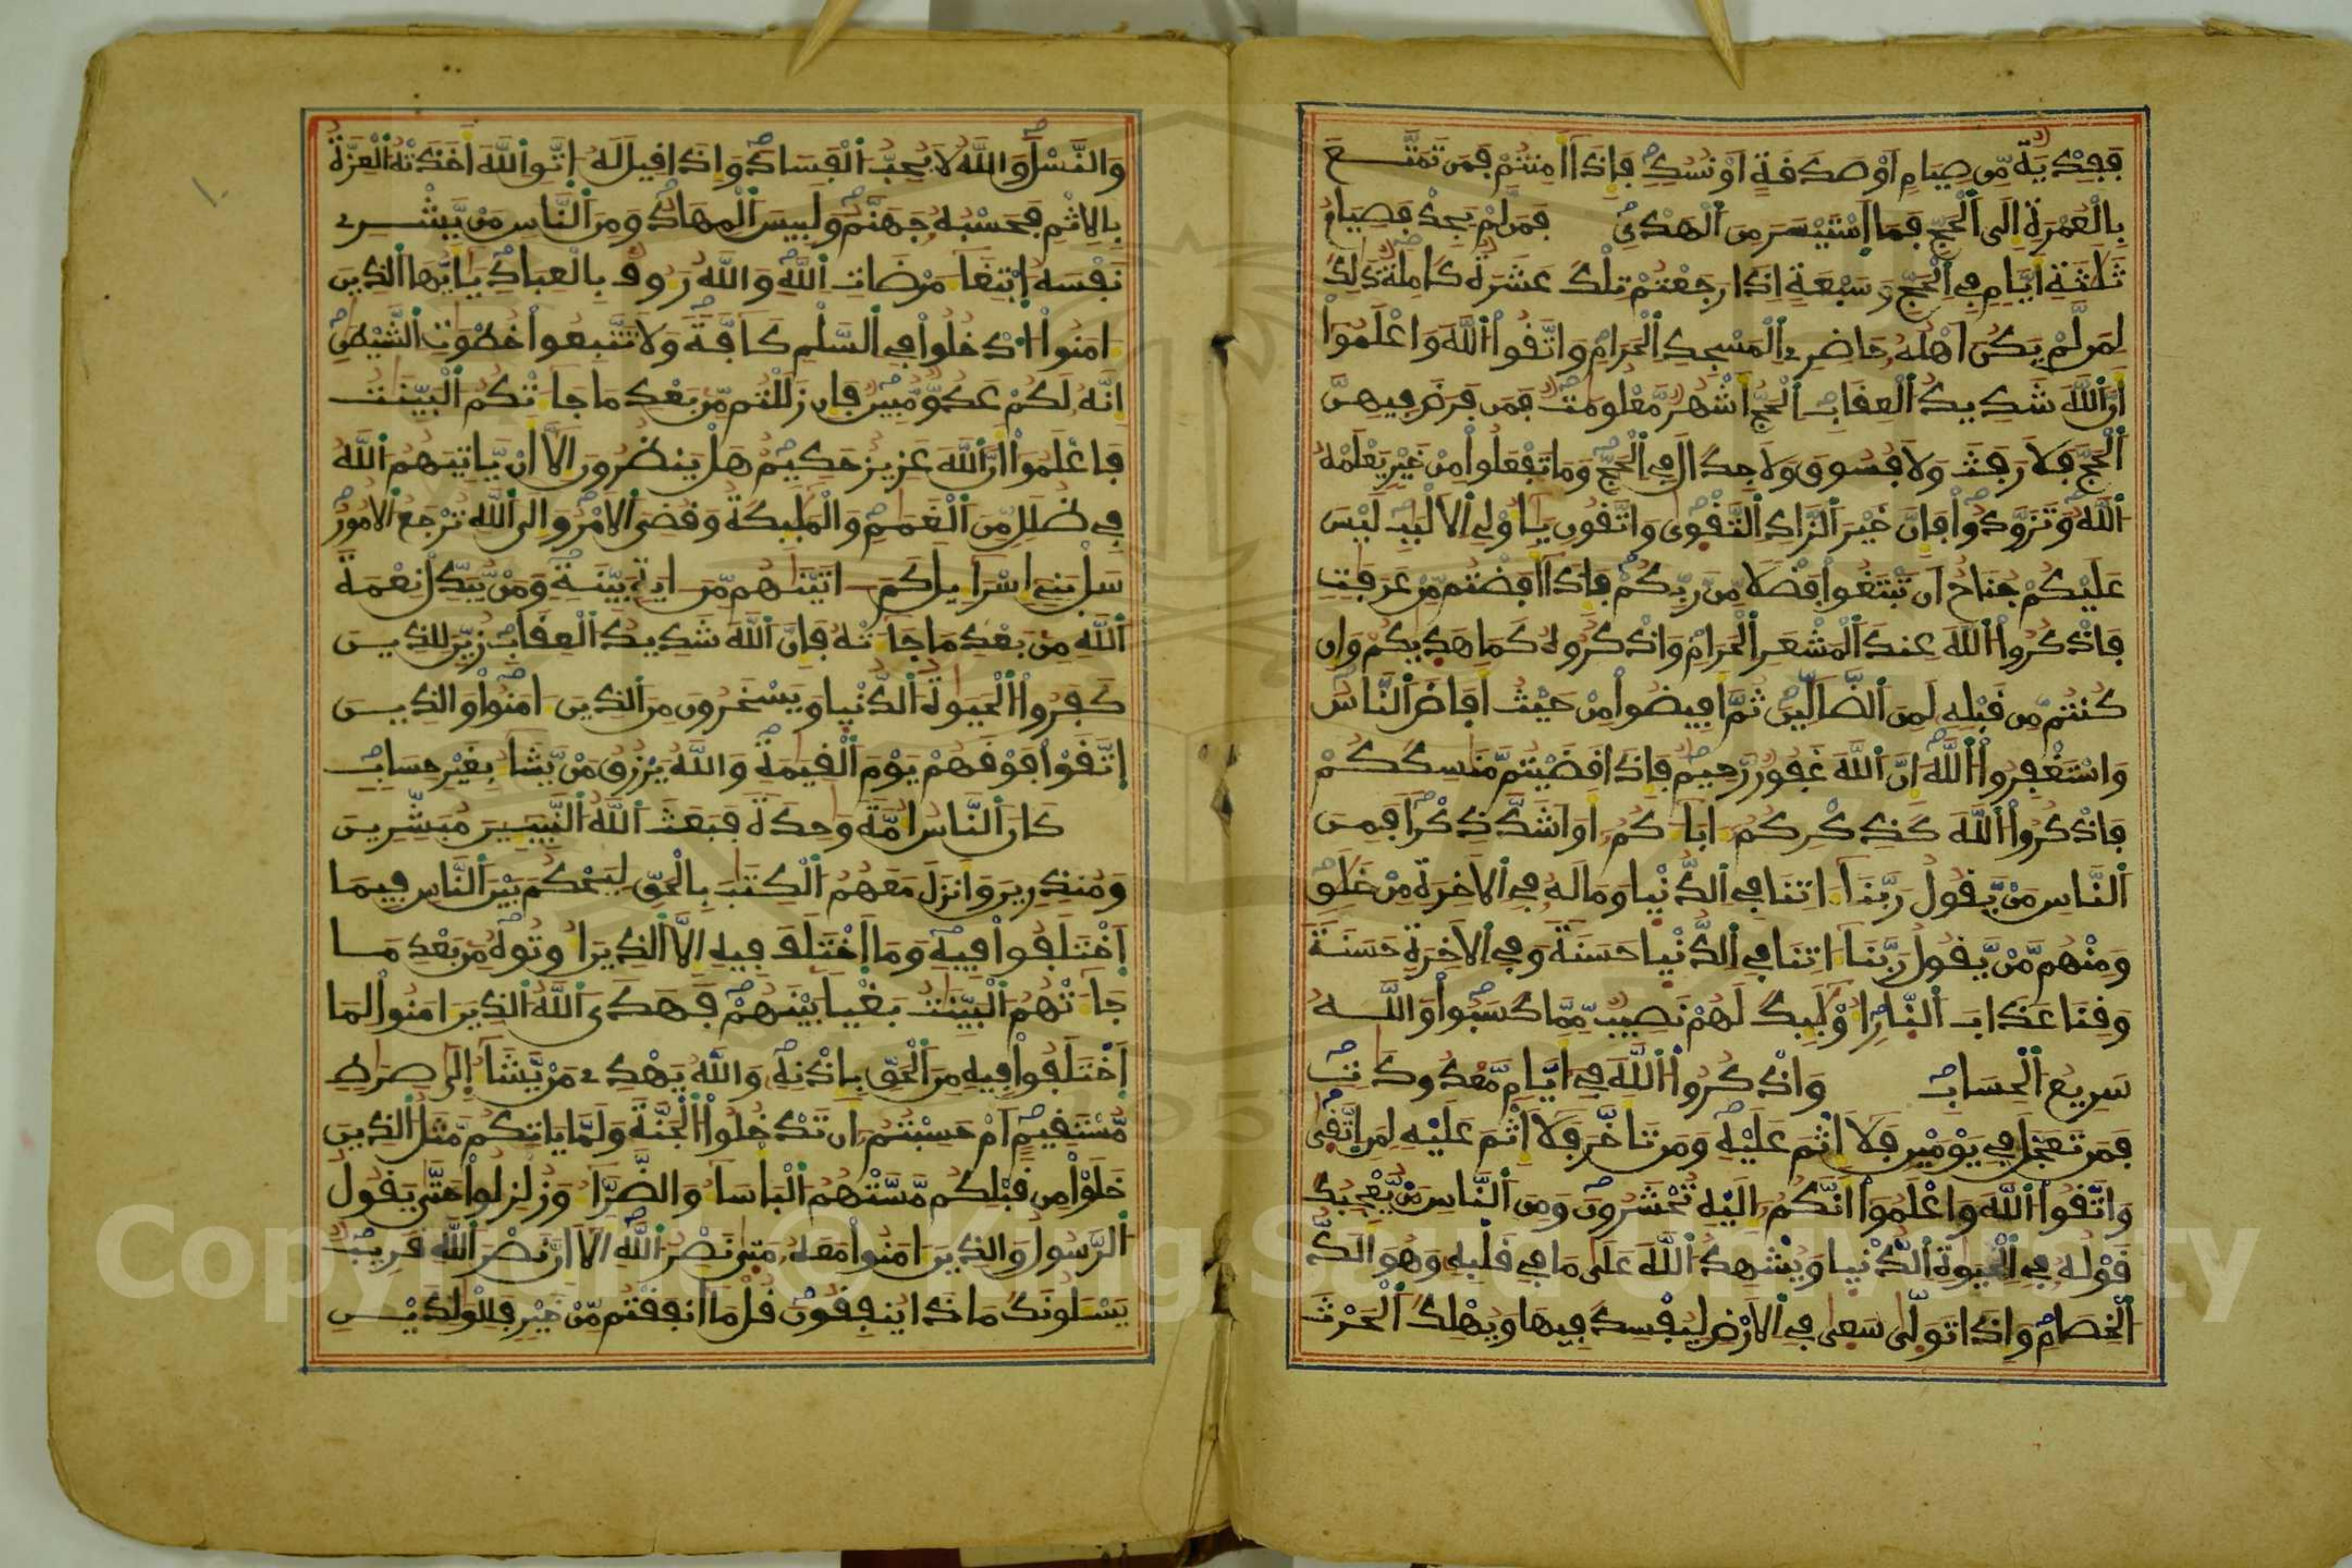 فَفِدْيَةٌ مِّن صِيَامٍ اَوْ صَدَقَةٍ اَوْ نُسُكٍ فَإِذَا أَمِنتُمْ فَمَن تَمَتَّعَ
بِالْعُمْرَةِ إِلَى اَلْحَجِّ فَمَا اَسْتَيْسَرَ مِنَ اَلْهَدْيِ فَمَن لَّمْ يَجِدْ فَصِيَامُ
ثَلَٰثَةِ أَيَّامٍ فِي اِلْحَجِّ وَسَبْعَةٍ اِذَا رَجَعْتُمْ تِلْكَ عَشَرَةٌ كَامِلَةٌ ذَٰلِكَ
لِمَن لَّمْ يَكُنَ اَهْلُهُ حَاضِرِي اِلْمَسْجِدِ اِلْحَرَامِ وَاتَّقُواْ اُللَّهَ وَاعْلَمُواْ
أَنَّ اَللَّهَ شَدِيدُ اُلْعِقَابِ اِلْحَجُّ أَشْهُرٌ مَّعْلُومَٰتٌ فَمَن فَرَضَ فِيهِنَّ
اَلْحَجَّ فَلَا رَفَثَ وَلَا فُسُوقَ وَلَا جِدَالَ فِي اِلْحَجِّ وَمَا تَفْعَلُواْ مِنْ خَيْرٍ يَعْلَمْهُ
اُللَّهُ وَتَزَوَّدُواْ فَإِنَّ خَيْرَ اَلزَّادِ اِلتَّقْوَىٰ وَاتَّقُونِ يَٰأُوْلِي اِلَالْبَٰبِ لَيْسَ
عَلَيْكُمْ جُنَاحٌ اَن تَبْتَغُواْ فَضْلًا مِّن رَّبِّكُمْ فَإِذَا أَفَضْتُم مِّنْ عَرَفَٰتٍ
فَاذْكُرُواْ اُللَّهَ عِندَ اَلْمَشْعَرِ اِلْحَرَامِ وَاذْكُرُوهُ كَمَا هَدَىٰكُمْ وَإِن
كُنتُم مِّن قَبْلِهِ لَمِنَ اَلضَّالِّينَ ثُمَّ أَفِيضُواْ مِنْ حَيْثُ أَفَاضَ اَلنَّاسُ
وَاسْتَغْفِرُواْ اُللَّهَ إِنَّ اَللَّهَ غَفُورٌ رَّحِيمٌ فَإِذَا قَضَيْتُم مَّنَٰسِكَكُمْ
فَاذْكُرُواْ اُللَّهَ كَذِكْرِكُمُ ءَابَاءَكُمُ أَوَ اَشَدَّ ذِكْرًا فَمِنَ
اَلنَّاسِ مَنْ يَّقُولُ رَبَّنَا ءَاتِنَا فِي اِلدُّنْيَا وَمَا لَهُ فِي اِلَاخِرَةِ مِنْ خَلَٰقٍ
وَمِنْهُم مَّنْ يَّقُولُ رَبَّنَا ءَاتِنَا فِي اِلدُّنْيَا حَسَنَةً وَفِي اِلَاخِرَةِ حَسَنَةً
وَقِنَا عَذَابَ اَلنَّارِ أُوْلَٰئِكَ لَهُمْ نَصِيبٌ مِّمَّا كَسَبُواْ وَاللَّهُ
سَرِيعُ اُلْحِسَابِ وَاذْكُرُواْ اُللَّهَ فِي أَيَّامٍ مَّعْدُودَٰتٍ
فَمَن تَعَجَّلَ فِي يَوْمَيْنِ فَلَا إِثْمَ عَلَيْهِ وَمَن تَأَخَّرَ فَلَا إِثْمَ عَلَيْهِ لِمَنِ اِتَّقَىٰ
وَاتَّقُواْ اُللَّهَ وَاعْلَمُواْ أَنَّكُمُ إِلَيْهِ تُحْشَرُونَ وَمِنَ اَلنَّاسِ مَنْ يُّعْجِبُكَ
قَوْلُهُ فِي اِلْحَيَوٰةِ اِلدُّنْيَا وَيُشْهِدُ اُللَّهَ عَلَىٰ مَا فِي قَلْبِهِ وَهُوَ أَلَدُّ
اُلْخِصَامِ وَإِذَا تَوَلَّىٰ سَعَىٰ فِي اِلَارْضِ لِيُفْسِدَ فِيهَا وَيُهْلِكَ اَلْحَرْثَ
وَالنَّسْلَ وَاللَّهُ لَا يُحِبُّ اُلْفَسَادَ وَإِذَا قِيلَ لَهُ اِتَّقِ اِللَّهَ أَخَذَتْهُ اُلْعِزَّةُ
بِالِاثْمِ فَحَسْبُهُ جَهَنَّمُ وَلَبِيسَ اَلْمِهَادُ وَمِنَ اَلنَّاسِ مَنْ يَّشْرِي
نَفْسَهُ اُبْتِغَاءَ مَرْضَاتِ اِللَّهِ وَاللَّهُ رَءُوفٌ بِالْعِبَادِ يَٰأَيُّهَا اَلذِينَ
ءَامَنُواْ اُدْخُلُواْ فِي اِلسَّلْمِ كَافَّةً وَلَا تَتَّبِعُواْ خُطْوَٰتِ اِلشَّيْطَٰنِ
إِنَّهُ لَكُمْ عَدُوٌّ مُّبِينٌ فَإِن زَلَلْتُم مِّن بَعْدِ مَا جَاءَتْكُمُ اُلْبَيِّنَٰتُ
فَاعْلَمُواْ أَنَّ اَللَّهَ عَزِيزٌ حَكِيمٌ هَلْ يَنظُرُونَ إِلَّا أَنْ يَّاتِيَهُمُ اُللَّهُ
فِي ظُلَلٍ مِّنَ اَلْغَمَٰمِ وَالْمَلَٰئِكَةُ وَقُضِيَ اَلَامْرُ وَإِلَى اَللَّهِ تُرْجَعُ اُلُامُورُ
سَلْ بَنِي إِسْرَاءِيلَ كَمَ ءَاتَيْنَٰهُم مِّنَ ءَايَةٍ بَيِّنَةٍ وَمَنْ يُّبَدِّلْ نِعْمَةَ
اَللَّهِ مِن بَعْدِ مَا جَاءَتْهُ فَإِنَّ اَللَّهَ شَدِيدُ اُلْعِقَابِ زُيِّنَ لِلذِينَ
كَفَرُواْ اُلْحَيَوٰةُ اُلدُّنْيَا وَيَسْخَرُونَ مِنَ اَلذِينَ ءَامَنُواْ وَالذِينَ
اَتَّقَوْاْ فَوْقَهُمْ يَوْمَ اَلْقِيَٰمَةِ وَاللَّهُ يَرْزُقُ مَنْ يَّشَاءُ بِغَيْرِ حِسَابٍ
كَانَ اَلنَّاسُ أُمَّةً وَٰحِدَةً فَبَعَثَ اَللَّهُ اُلنَّبِيـِٕينَ مُبَشِّرِينَ
وَمُنذِرِينَ وَأَنزَلَ مَعَهُمُ اُلْكِتَٰبَ بِالْحَقِّ لِيَحْكُمَ بَيْنَ اَلنَّاسِ فِيمَا
اَخْتَلَفُواْ فِيهِ وَمَا اَخْتَلَفَ فِيهِ إِلَّا اَلذِينَ أُوتُوهُ مِن بَعْدِ مَا
جَاءَتْهُمُ اُلْبَيِّنَٰتُ بَغْيًا بَيْنَهُمْ فَهَدَى اَللَّهُ اُلذِينَ ءَامَنُواْ لِمَا
اَخْتَلَفُواْ فِيهِ مِنَ اَلْحَقِّ بِإِذْنِهِ وَاللَّهُ يَهْدِي مَنْ يَّشَاءُ إِلَىٰ صِرَٰطٍ
مُّسْتَقِيمٍ أَمْ حَسِبْتُمُ أَن تَدْخُلُواْ اُلْجَنَّةَ وَلَمَّا يَاتِكُم مَّثَلُ اُلذِينَ
خَلَوْاْ مِن قَبْلِكُم مَّسَّتْهُمُ اُلْبَأْسَاءُ وَالضَّرَّاءُ وَزُلْزِلُواْ حَتَّىٰ يَقُولُ
اُلرَّسُولُ وَالذِينَ ءَامَنُواْ مَعَهُ مَتَىٰ نَصْرُ اُللَّهِ أَلَا إِنَّ نَصْرَ اَللَّهِ قَرِيبٌ
يَسْـَٔلُونَكَ مَاذَا يُنفِقُونَ قُلْ مَا أَنفَقْتُم مِّنْ خَيْرٍ فَلِلْوَٰلِدَيْنِ
Copyright © King Saud University